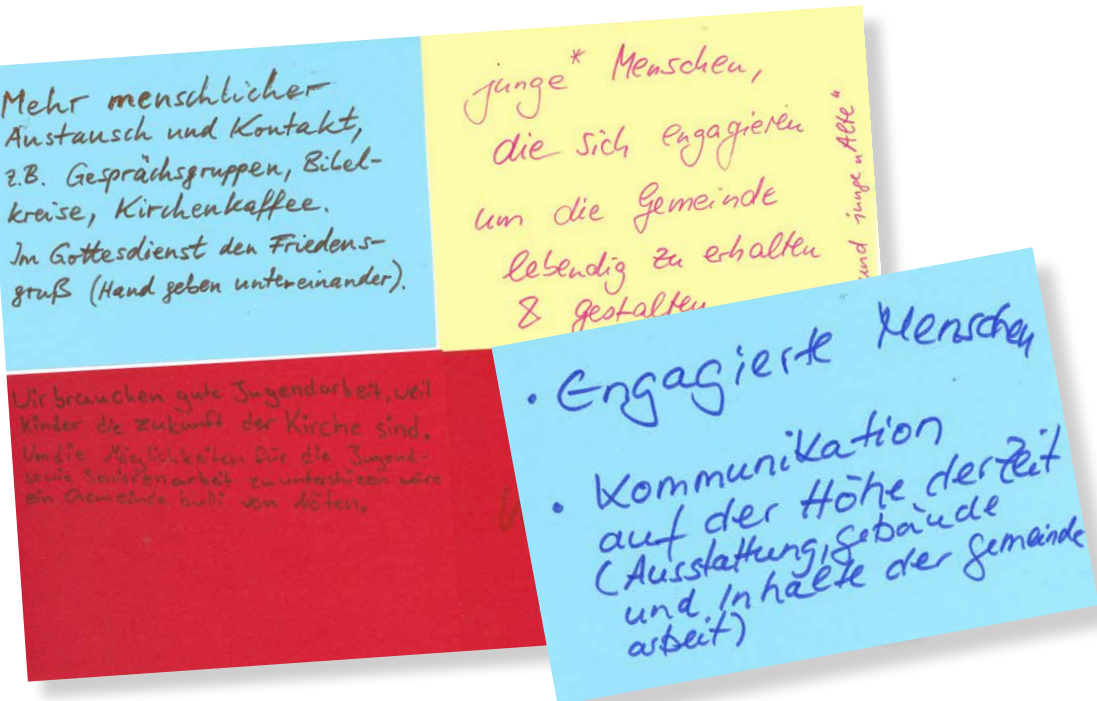 Mehr menschlicher
Austausch und Kontakt,
z.B. Gesprächsgruppen, Bibel-
kreise, Kirchenkaffee.
Im Gottesdienst den Friedens-
gruß (Hand geben untereinander).
junge* Menschen,
die sich engagieren
um die Gemeinde
lebendig zu erhalten
& gestalten
und junge „Alte“
Wir brauchen gute Jugendarbeit, weil
Kinder die Zukunft der Kirche sind.
Um die Möglichkeiten für die Jugend-
sowie Seniorenarbeit zu unterstüzen wäre
ein Gemeinde bulli von Nöten.
• Engagierte Menschen
• Kommunikation
auf der Höhe der Zeit
(Ausstattung, Gebäude
und Inhalte der Gemeinde
arbeit)